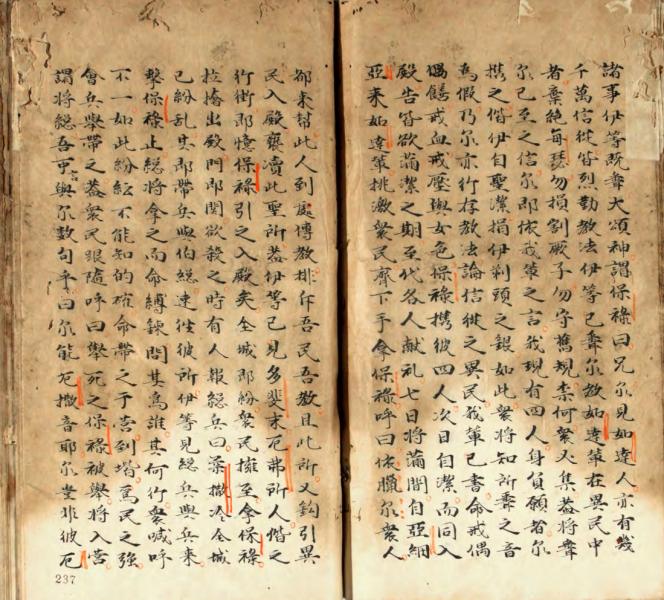 諸事伊等既聽大頌神謂保祿曰兄尔見如達人亦有幾
千萬信從皆烈勤教法伊等已聽尔教如達輩在異民中
者棄絕每瑟勿損割厥子勿守舊規柰何眾必集蓋將聽
尔已至之信尔即依我輩之言我現有四人身負願者尔
攜之偕伊自聖潔捐伊剃頭之銀如此眾將知所聽之音
為假乃尔亦行存教法論信從之異民我輩已書命戒偶
偶餚戒血戒壓與女色保祿攜彼四人次日自潔而同入
殿告皆欲滿潔之期至代各人献礼七日將滿間自亞細
亞来如達輩挑激眾民齊下手拿保祿呼曰依臘尔眾人
都来幫此人到處傳教排斥吾民吾教且此所又鈎引異
民入殿褻瀆此聖所蓋伊等已見多斐末厄弗所人偕之
行街即憶保祿引之入殿矣全城即紛眾民擁至拿保祿
拉搶出殿門即関欲殺之時有人報總兵曰柔撒冷全城
已紛乱其即帶兵與伯總速往彼所伊等見總兵與兵来
擊保祿止總將拿之而命縛鍊問其為誰其何行眾喊呼
不一如此紛紜不能知的確命帶之于營到堦為民之強
會兵舉帶之蓋眾民跟隨呼曰舉死之保祿被舉將入營
謂將総吾可與尔数句乎曰尔能厄撒音耶尔豈非彼厄
237